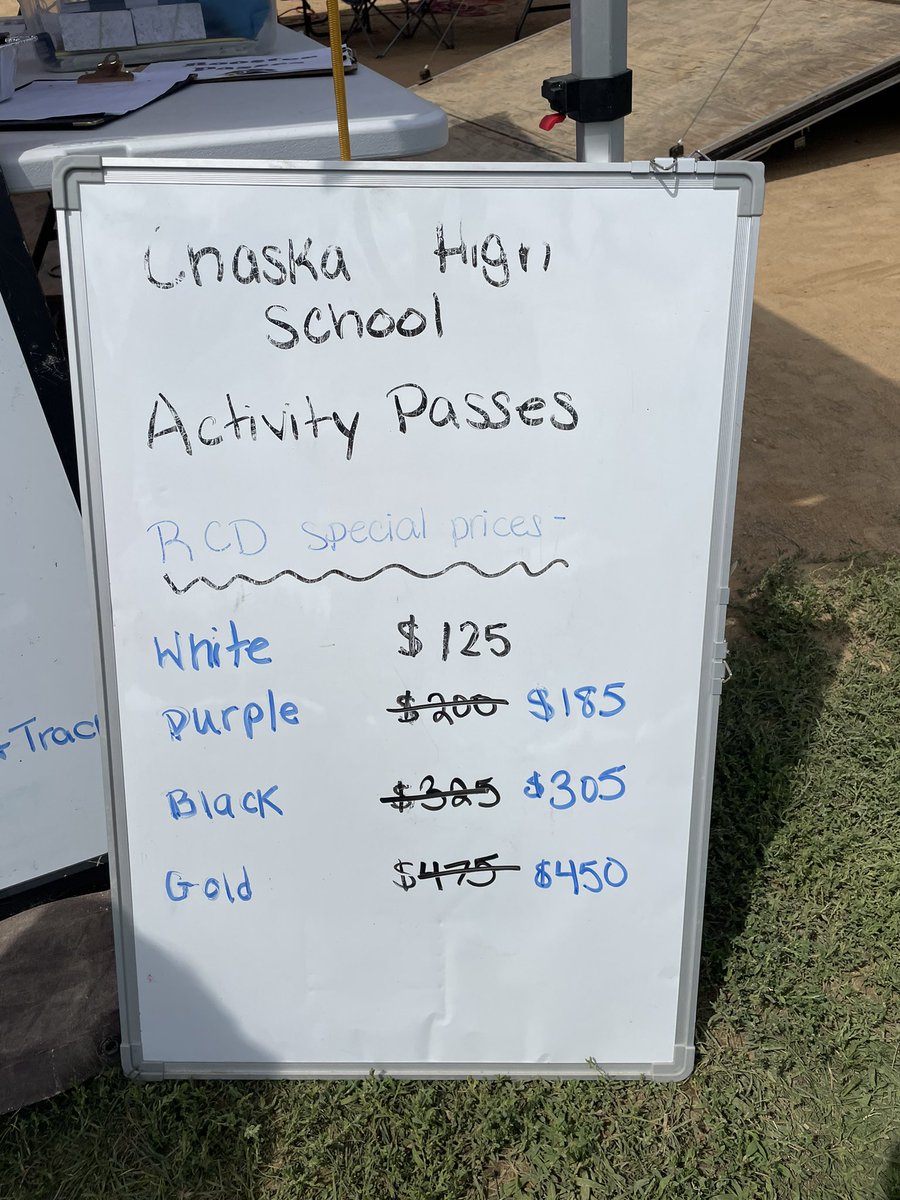 Chaska High
School
Activity Passes
RCD special prices-
White $125
Purple $200 $185
Black $325 $305
Gold $475 $450
Trac